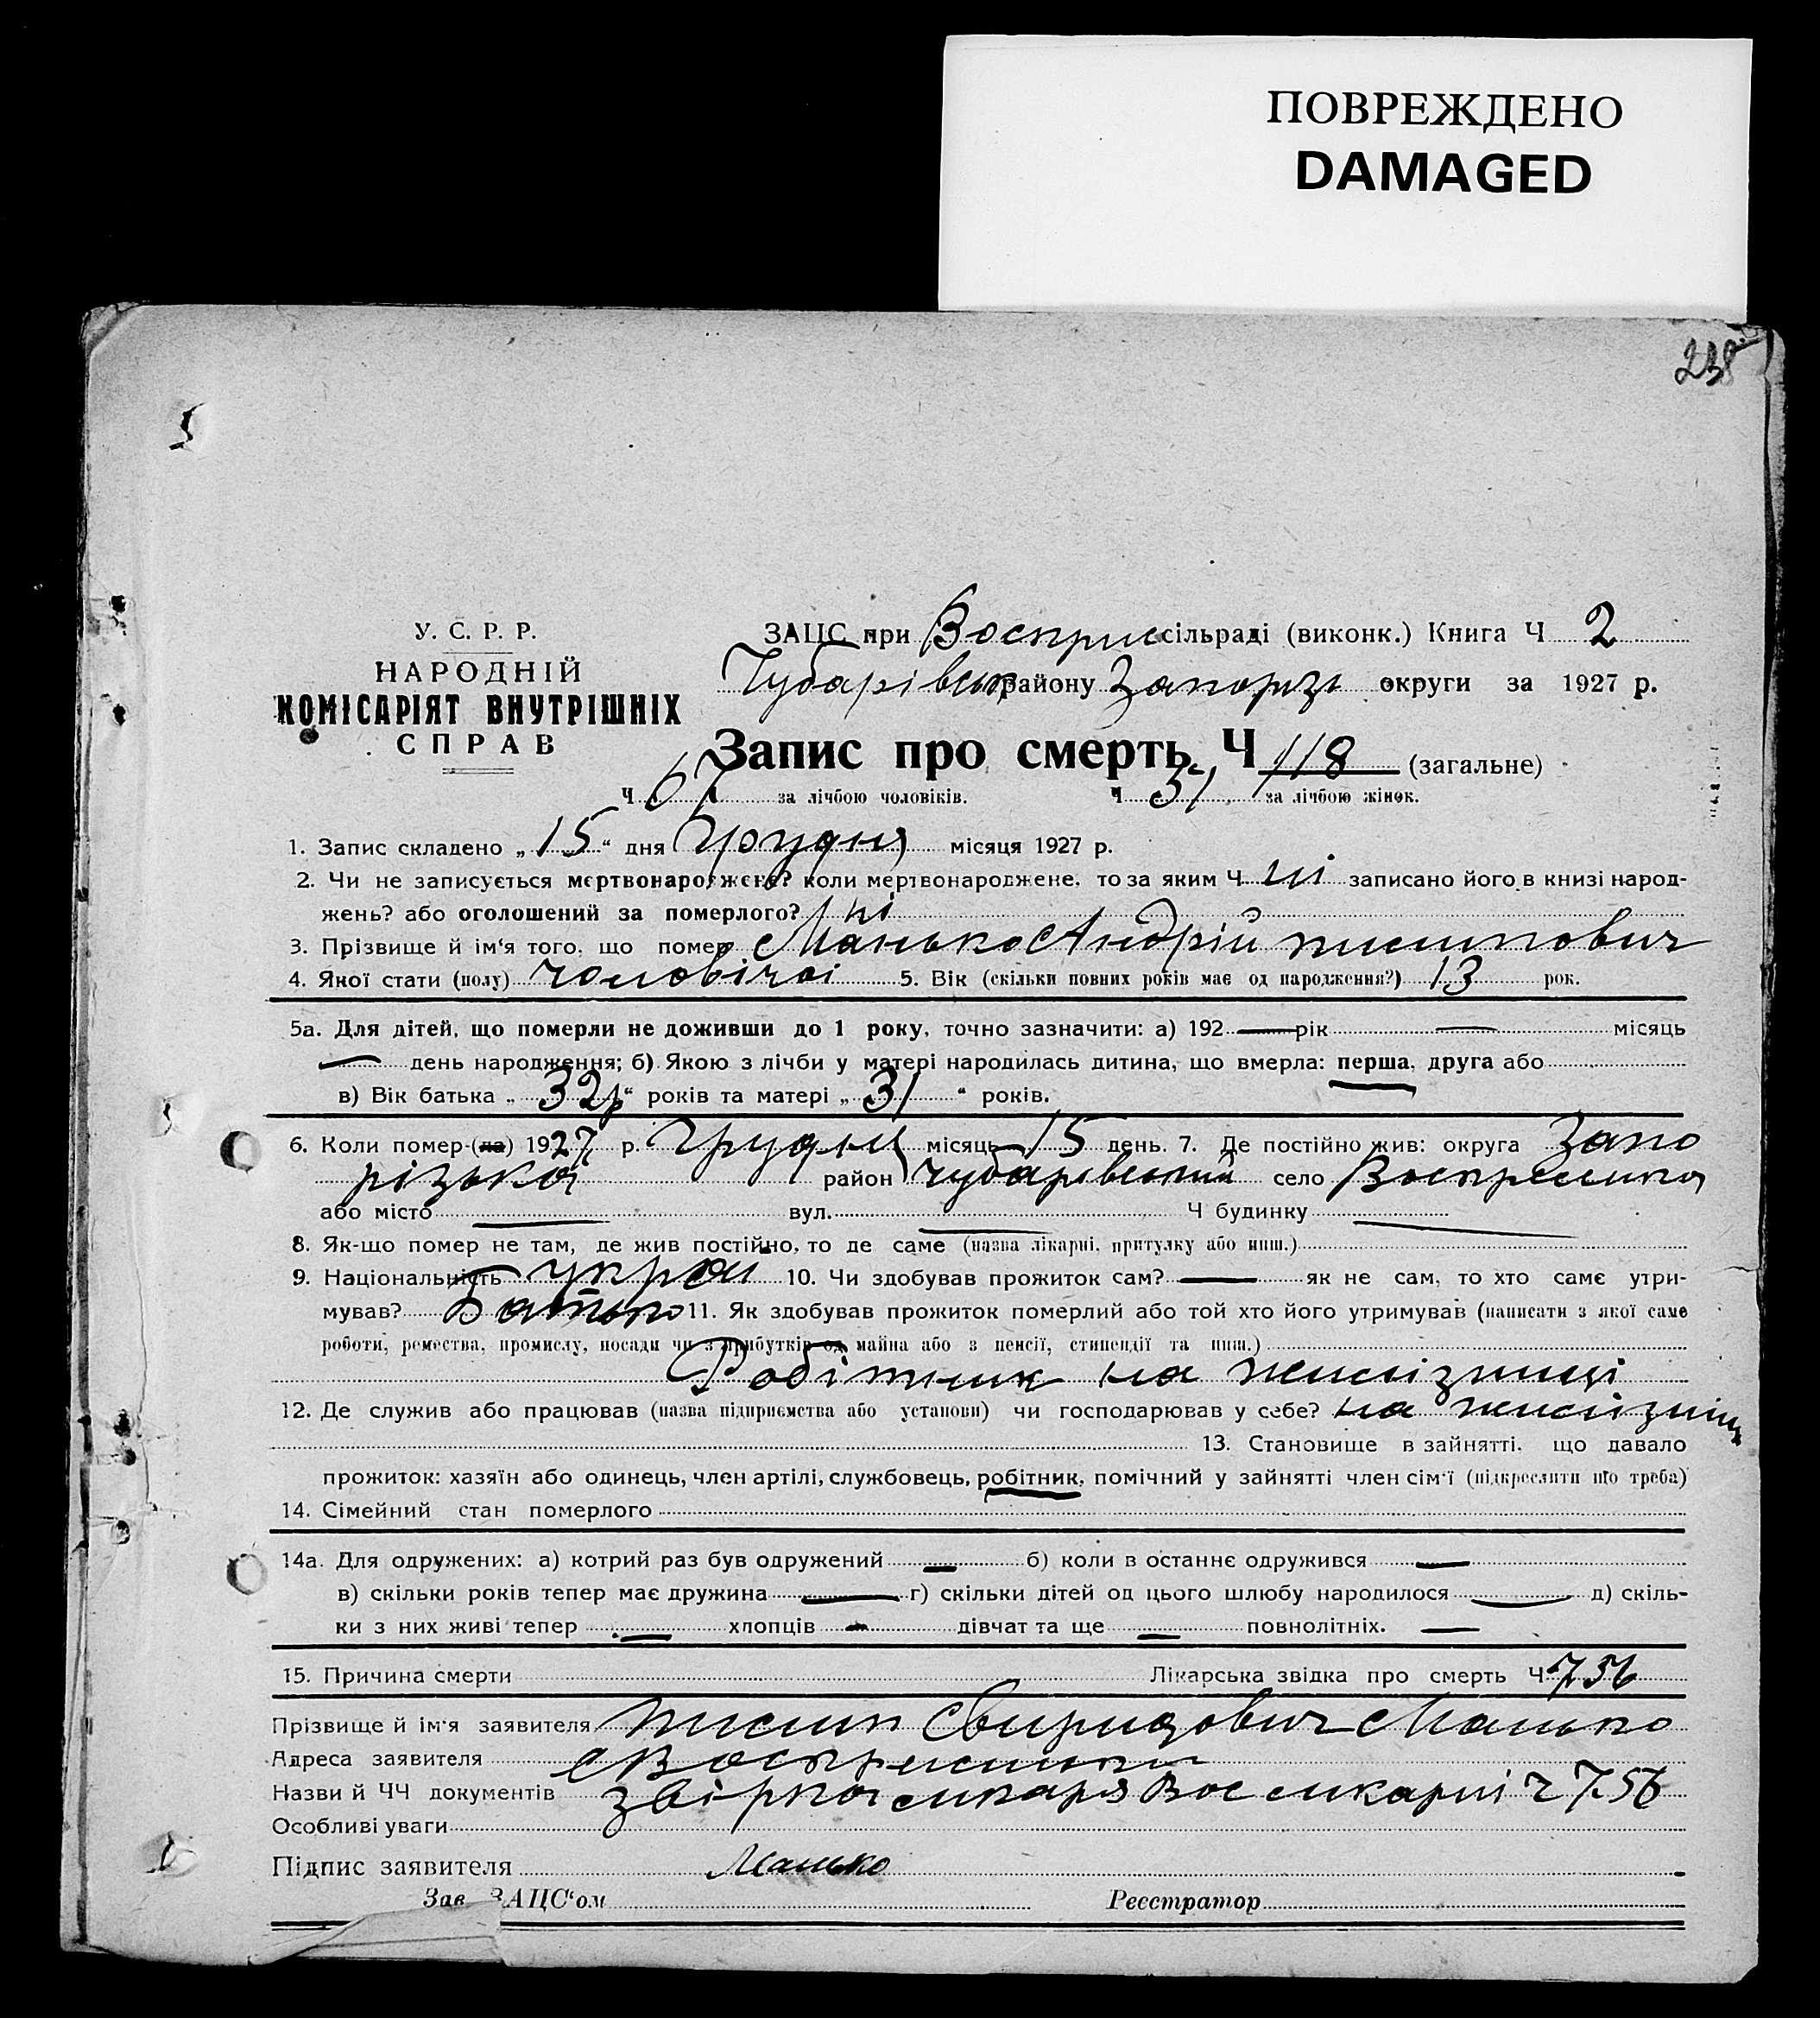 ПОВРЕЖДЕНО
DAMAGED
238
У. С. Р. Р.
НАРОДНІЙ
КОМІСАРІЯТ ВНУТРІШНІХ
СПРАВ
ЗАЦС при Воскрис сільраді (виконк.) Книга Ч 2
Чубарівськ району Запоризь округи за 1927 р.
Запис про смерть Ч 118 (загальне)
Ч 67 за лічбою чоловіків. Ч 51 за лічбою жінок.
1. Запис складено „ 15 “ дня Грудня місяця 1927 р.
2. Чи не записується мертвонароджене? коли мертвонароджене, то за яким Ч ні записано його в книзі народ-
жень? або оголошений за померлого? ні
3. Прізвище й ім‘я того, що помер Манько Андрій пилипович
4. Якої стати (полу) чоловічоі 5. Вік (скільки повних років має од народження?) 13 рок.
5а. Для дітей, що померли не доживши до 1 року, точно зазначити: а) 192 — рік — місяць
— день народження; б) Якою з лічби у матері народилась дитина, що вмерла: перша, друга або
в) Вік батька „ 32р “ років та матері „ 31 “ років.
6. Коли помер-(ла) 1927 р. Грудня місяць 15 день. 7. Де постійно жив: округа Запо
різька район Чубарівський село Воскресинка
або місто — вул. — Ч будинку —
8. Як-що помер не там, де жив постійно, то де саме (назва лікарні, притулку або инш.)
9. Національність украй 10. Чи здобував прожиток сам? — як не сам, то хто саме утри-
мував? Батько 11. Як здобував прожиток померлий або той хто його утримував (написати з якої саме
роботи, ремества, промислу, посади чи з прибутків од майна або з пенсії, стипендії та инш.)
Робітник на жилізниці
12. Де служив або працював (назва підприємства або установи) чи господарював у себе? на жилізниц
13. Становище в зайнятті, що давало
прожиток: хазяїн або одинець, член артілі, службовець, робітник, помічний у зайнятті член сім‘ї (підкреслити що треба)
14. Сімейний стан померлого
14а. Для одружених: а) котрий раз був одружений — б) коли в останнє одружився —
в) скільки років тепер має дружина — г) скільки дітей од цього шлюбу народилося — д) скіль-
ки з них живі тепер — хлопців — дівчат та ще — повнолітніх. —
15. Причина смерти Лікарська звідка про смерть Ч 756
Прізвище й ім‘я заявителя пилип Свиридович Манько
Адреса заявителя с Воскресинка
Назви й ЧЧ документів звірка ликаря Вос ликарні ч 756
Особливі уваги
Підпис заявителя Манько
Зав. ЗАЦС‘ом Реєстратор